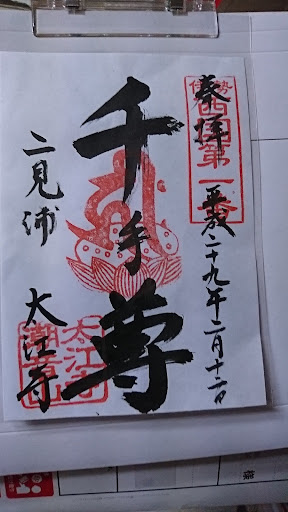 奉拝
伊勢西国第一番
平成二十九年二月十二日
千手尊
二見浦
太江寺
太江寺
潮音山